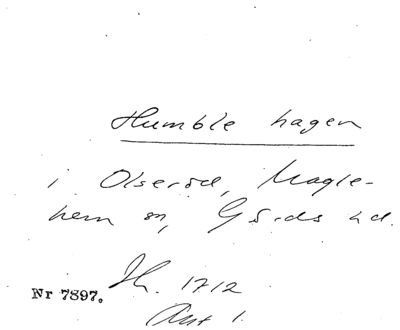 Humble hagen
i Olseröd, Magle-
hem sn, Gärds hd.
Nr 7897.
1712